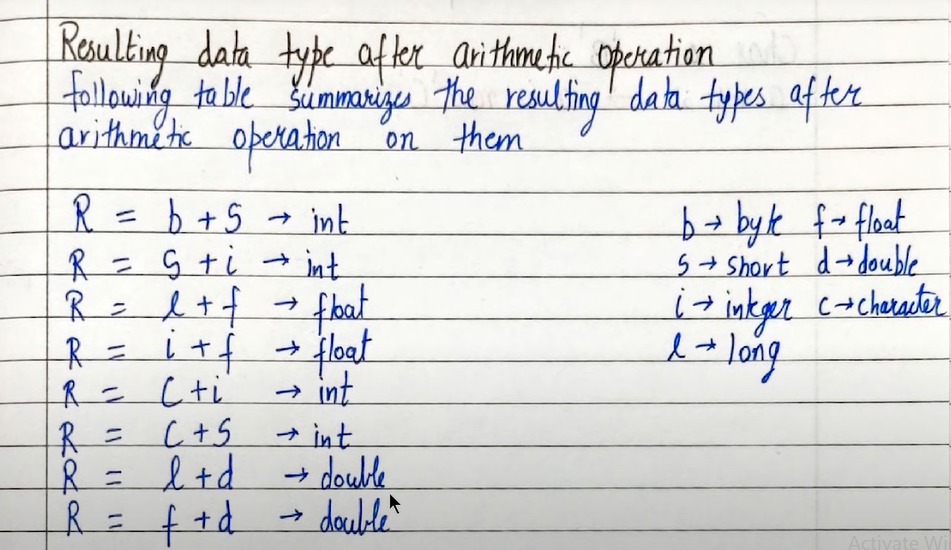 Resulting data type after arithmetic operation
following table summarizes the resulting data types after
arithmetic operation on them
R = b + s → int
R = s + i → int
R = l + f → float
R = i + f → float
R = c + i → int
R = c + s → int
R = l + d → double
R = f + d → double
b → byte f → float
s → short d → double
i → integer c → character
l → long
Activate Wi